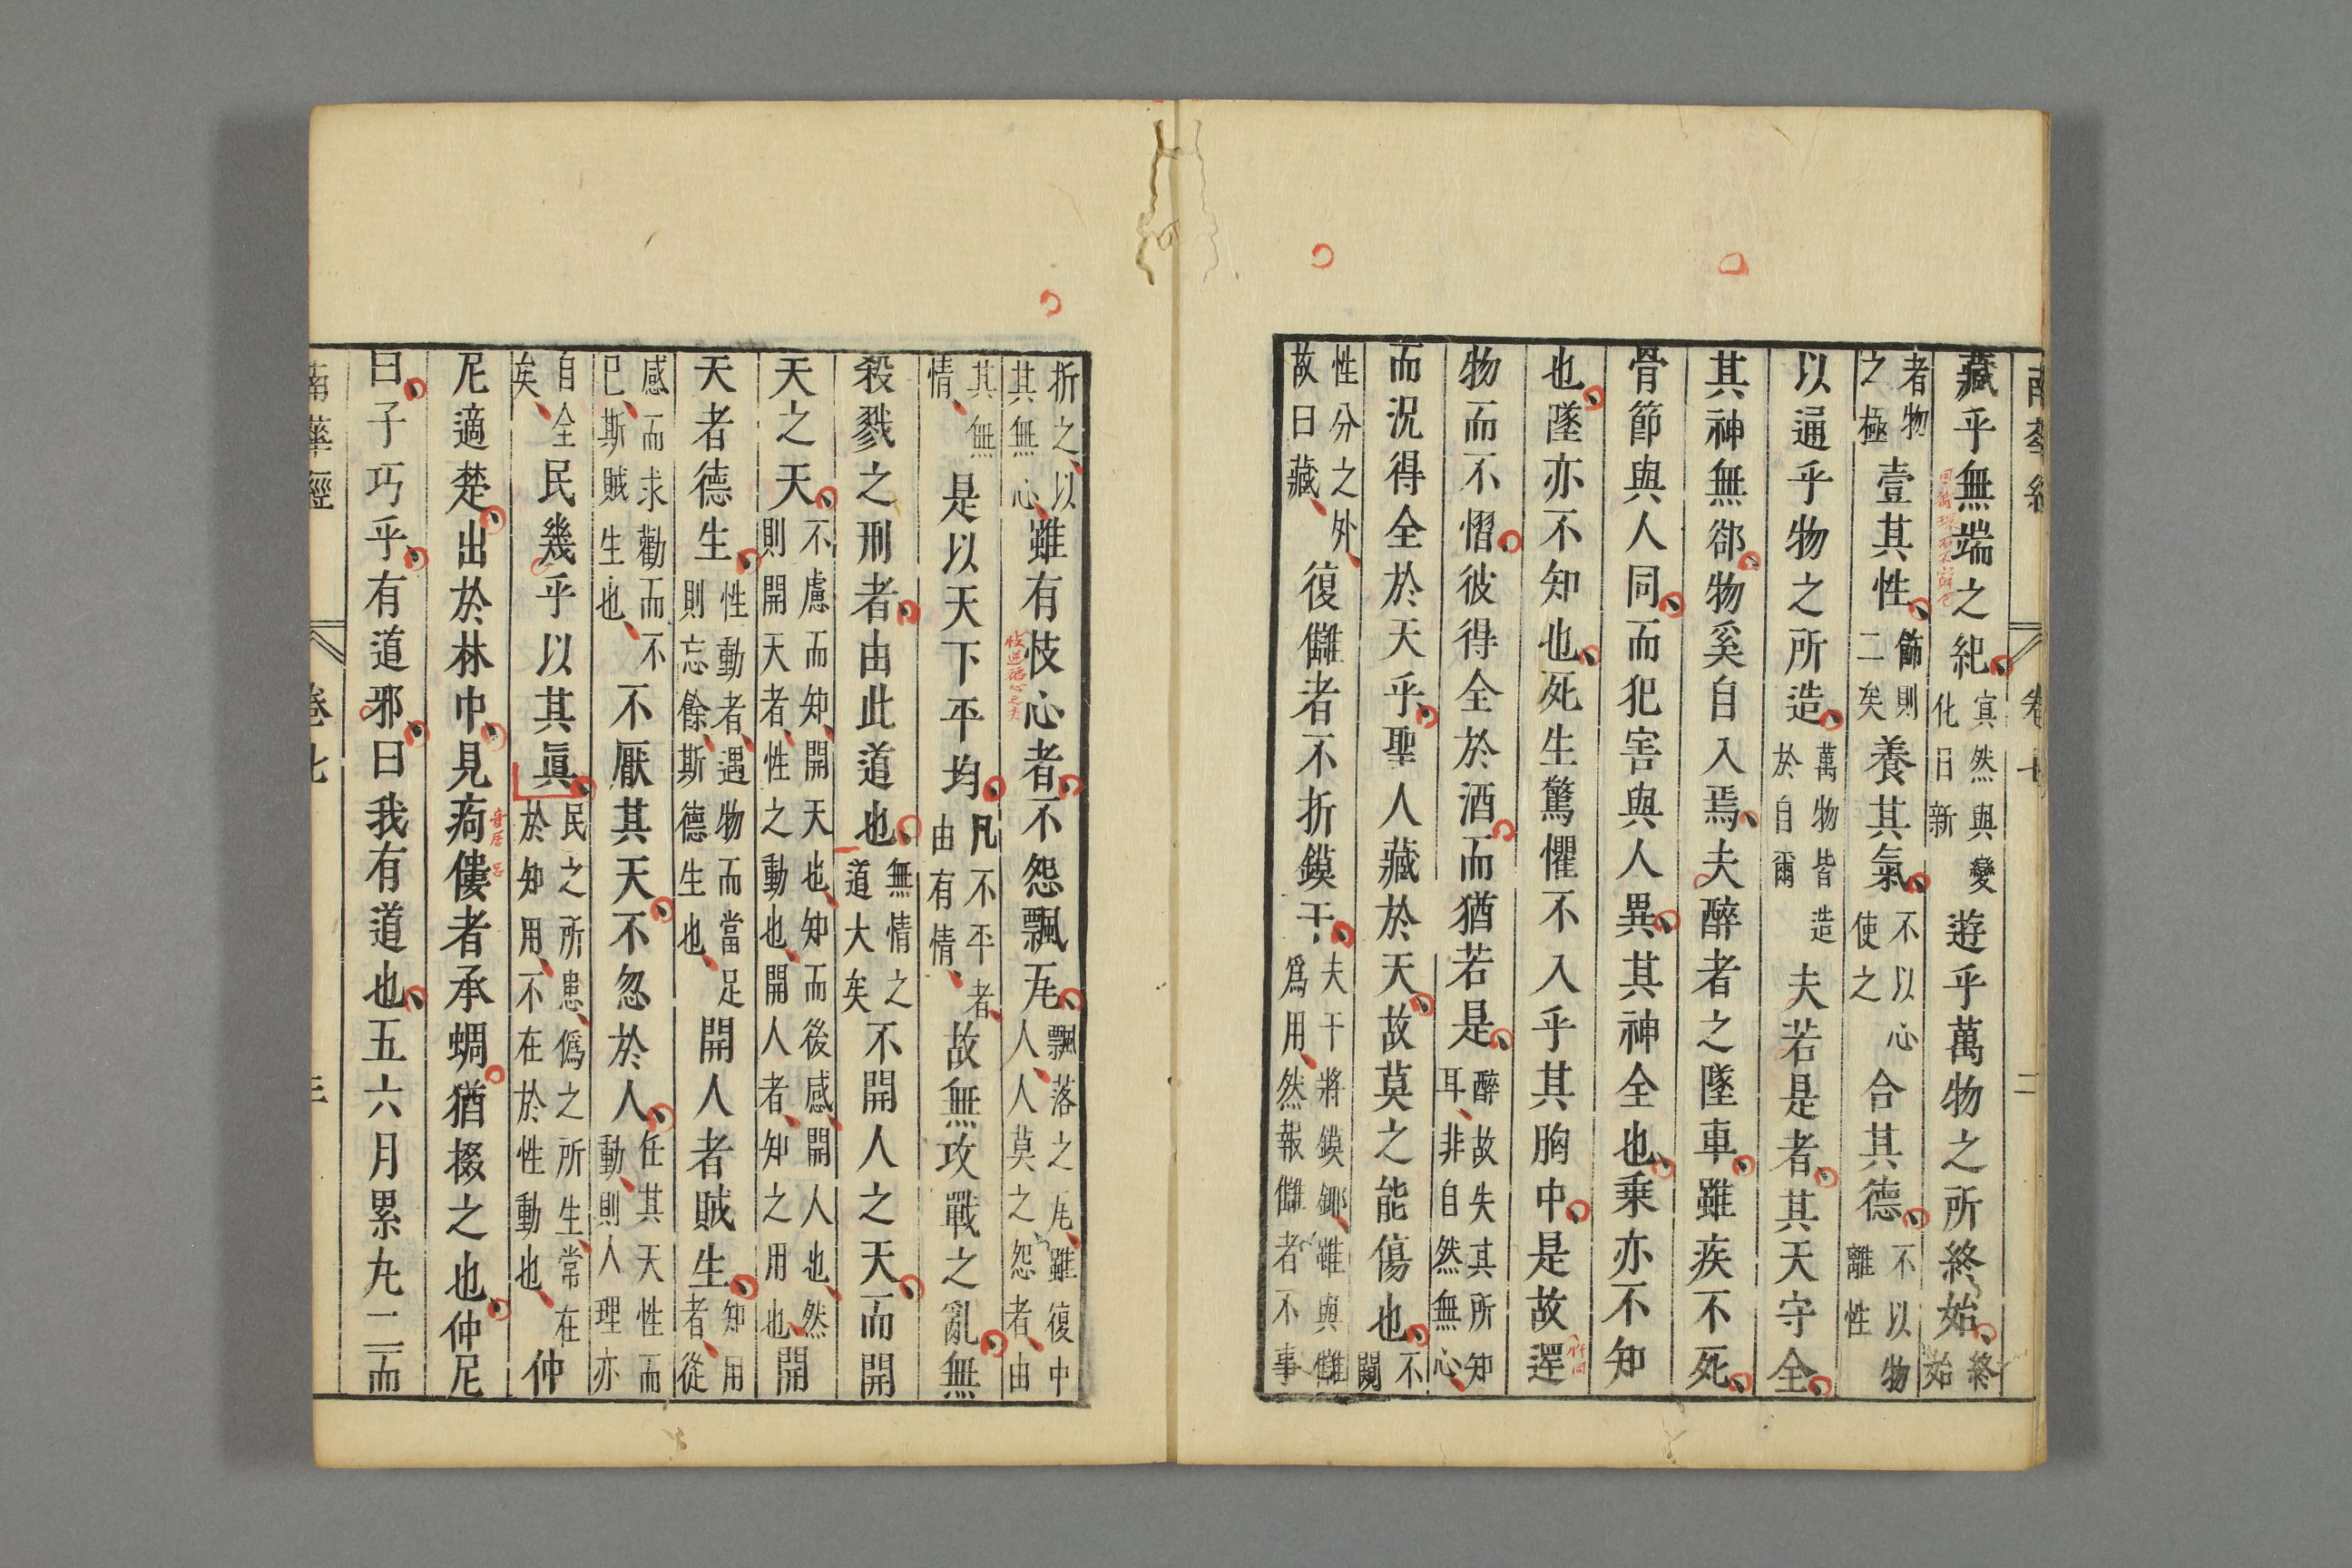 南華經 卷七 二
藏乎無端之紀冥然與變化日新遊乎萬物之所終始終始
者物之極壹其性飾則二矣養其氣不以心使之合其德不以物離性
以通乎物之所造萬物皆造於自爾夫若是者其天守全
其神無郤物奚自入焉夫醉者之墜車雖疾不死
骨節與人同而犯害與人異其神全也乘亦不知
也墜亦不知也死生驚懼不入乎其胸中是故遻
物而不慴彼得全於酒而猶若是醉故失其所知耳非自然無心
而況得全於天乎聖人藏於天故莫之能傷也不闚
性分之外故曰藏復讎者不折鏌干夫干將鏌鋣雖與讎爲用然報讎者不事
折之以其無心雖有忮心者不怨飄瓦飄落之瓦雖復中人人莫之怨者由
其無情是以天下平均凡不平者由有情故無攻戰之亂無
殺戮之刑者由此道也無情之道大矣不開人之天而開
天之天不慮而知開天也知而後感開人也然則開天者性之動也開人者知之用也開
天者德生性動者遇物而當足則忘餘斯德生也開人者賊生知用者從
感而求勸而不已斯賊生也不厭其天不忽於人任其天性而動則人理亦
自全矣民幾乎以其眞民之所患僞之所生常在於知用不在於性動也仲
尼適楚出於林中見痀僂者承蜩猶掇之也仲尼
曰子巧乎有道邪曰我有道也五六月累丸二而
南華經 卷七 三